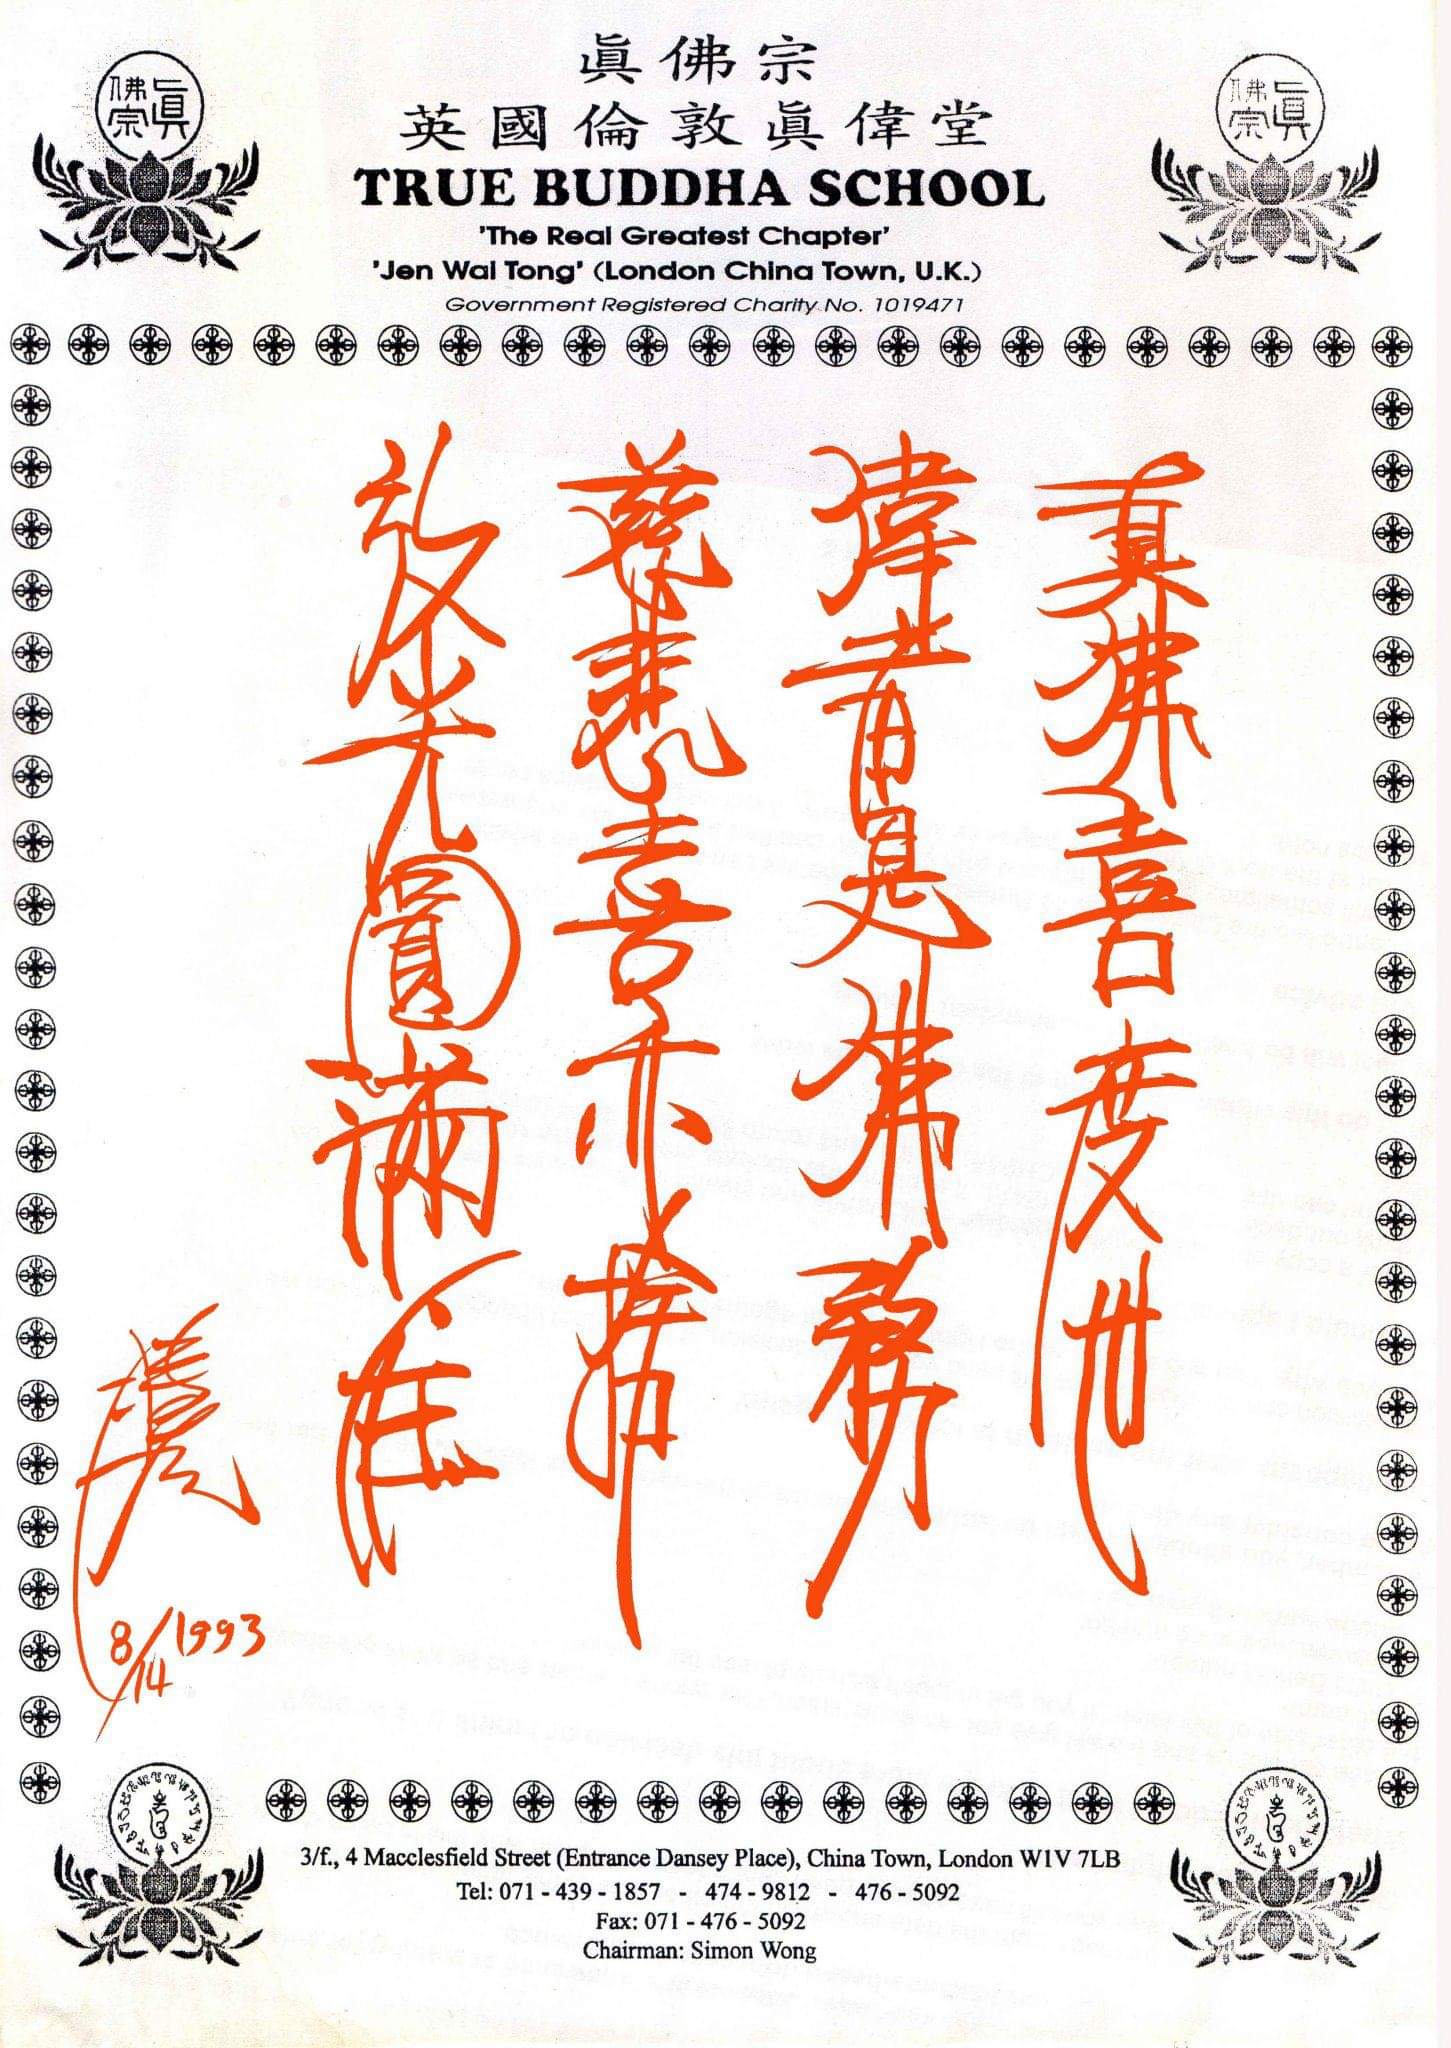 眞佛宗
眞佛宗
眞佛宗
英國倫敦眞偉堂
TRUE BUDDHA SCHOOL
'The Real Greatest Chapter'
'Jen Wai Tong' (London China Town, U.K.)
Government Registered Charity No. 1019471
真佛喜度世
偉見佛務
慈悲喜亦
光圓滿在
8/14 1993
3/f., 4 Macclesfield Street (Entrance Dansey Place), China Town, London W1V 7LB
Tel: 071 - 439 - 1857 - 474 - 9812 - 476 - 5092
Fax: 071 - 476 - 5092
Chairman: Simon Wong